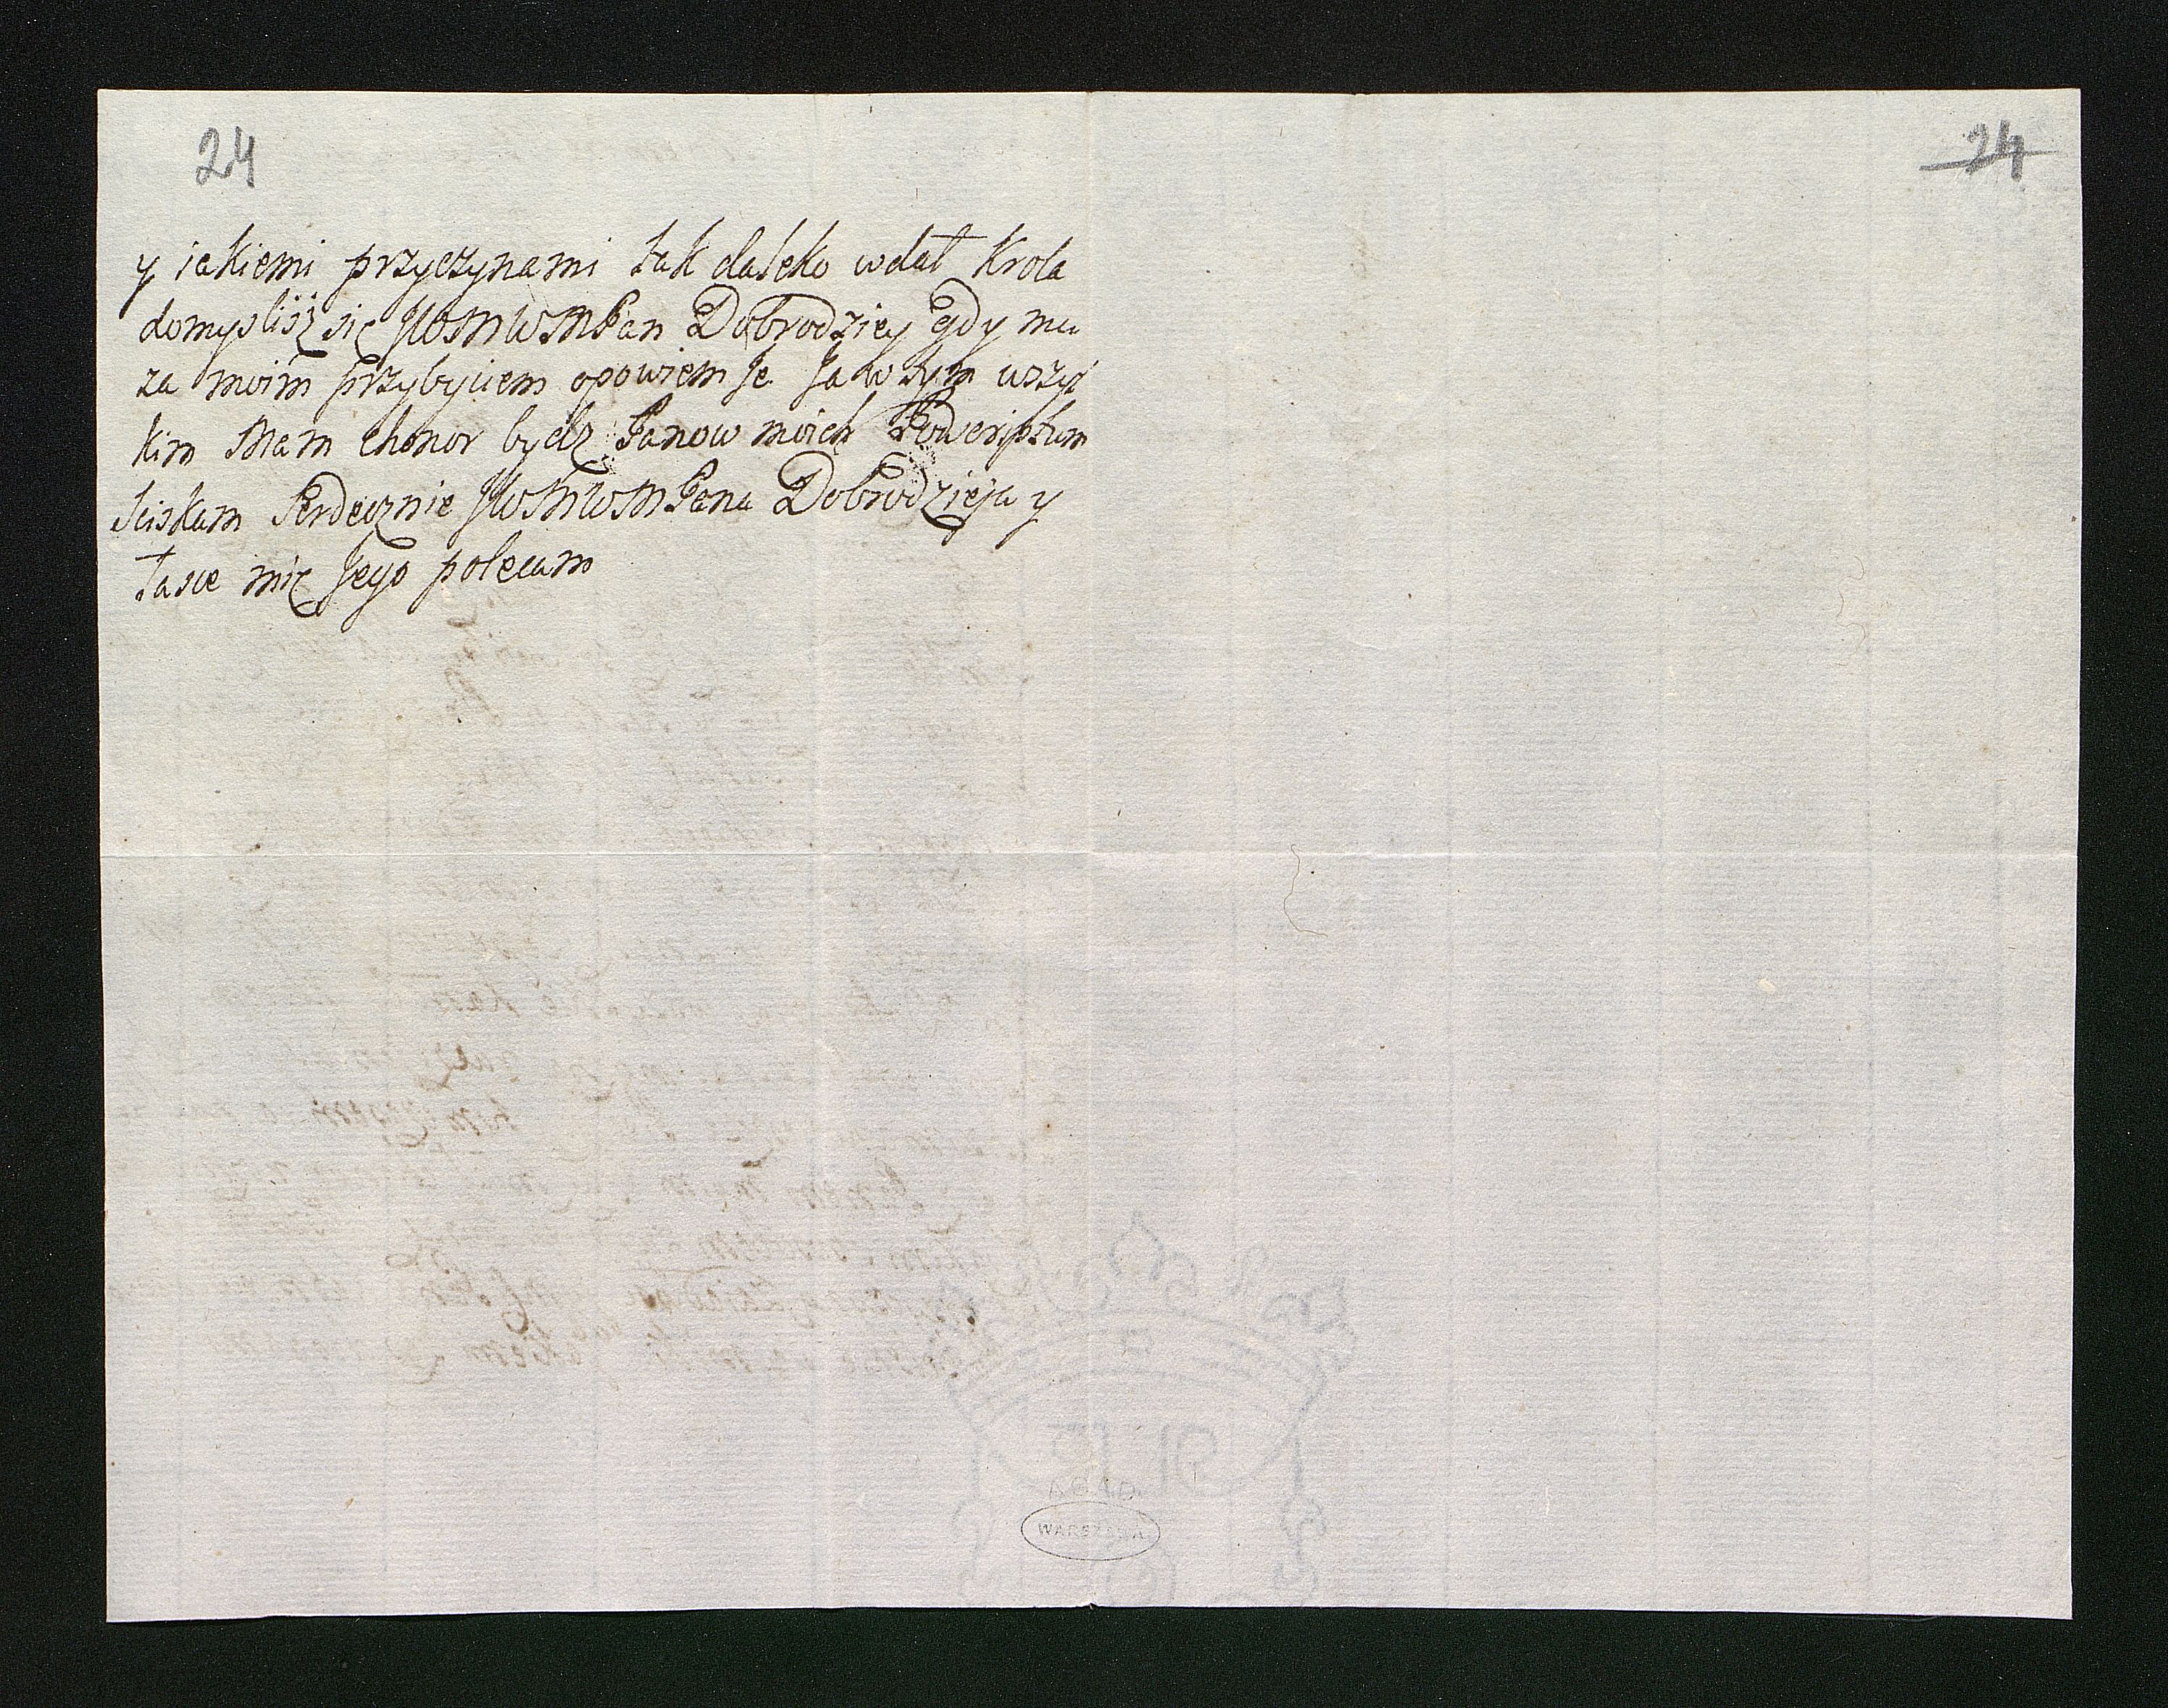 24
24
y iakiemi przyczynami tak daleko wdał Krola
domyslisz się JWMWMPan Dobrodziey gdy mu
za moim przybyciem opowiem Je Ja w tym wszyt
kim Mam Chonor bydz Panow moich
Sciskam Serdecznie JWMWMPana Dobrodzieja y
Łasce mię Jego polecam
AGAD
WARSZAWA